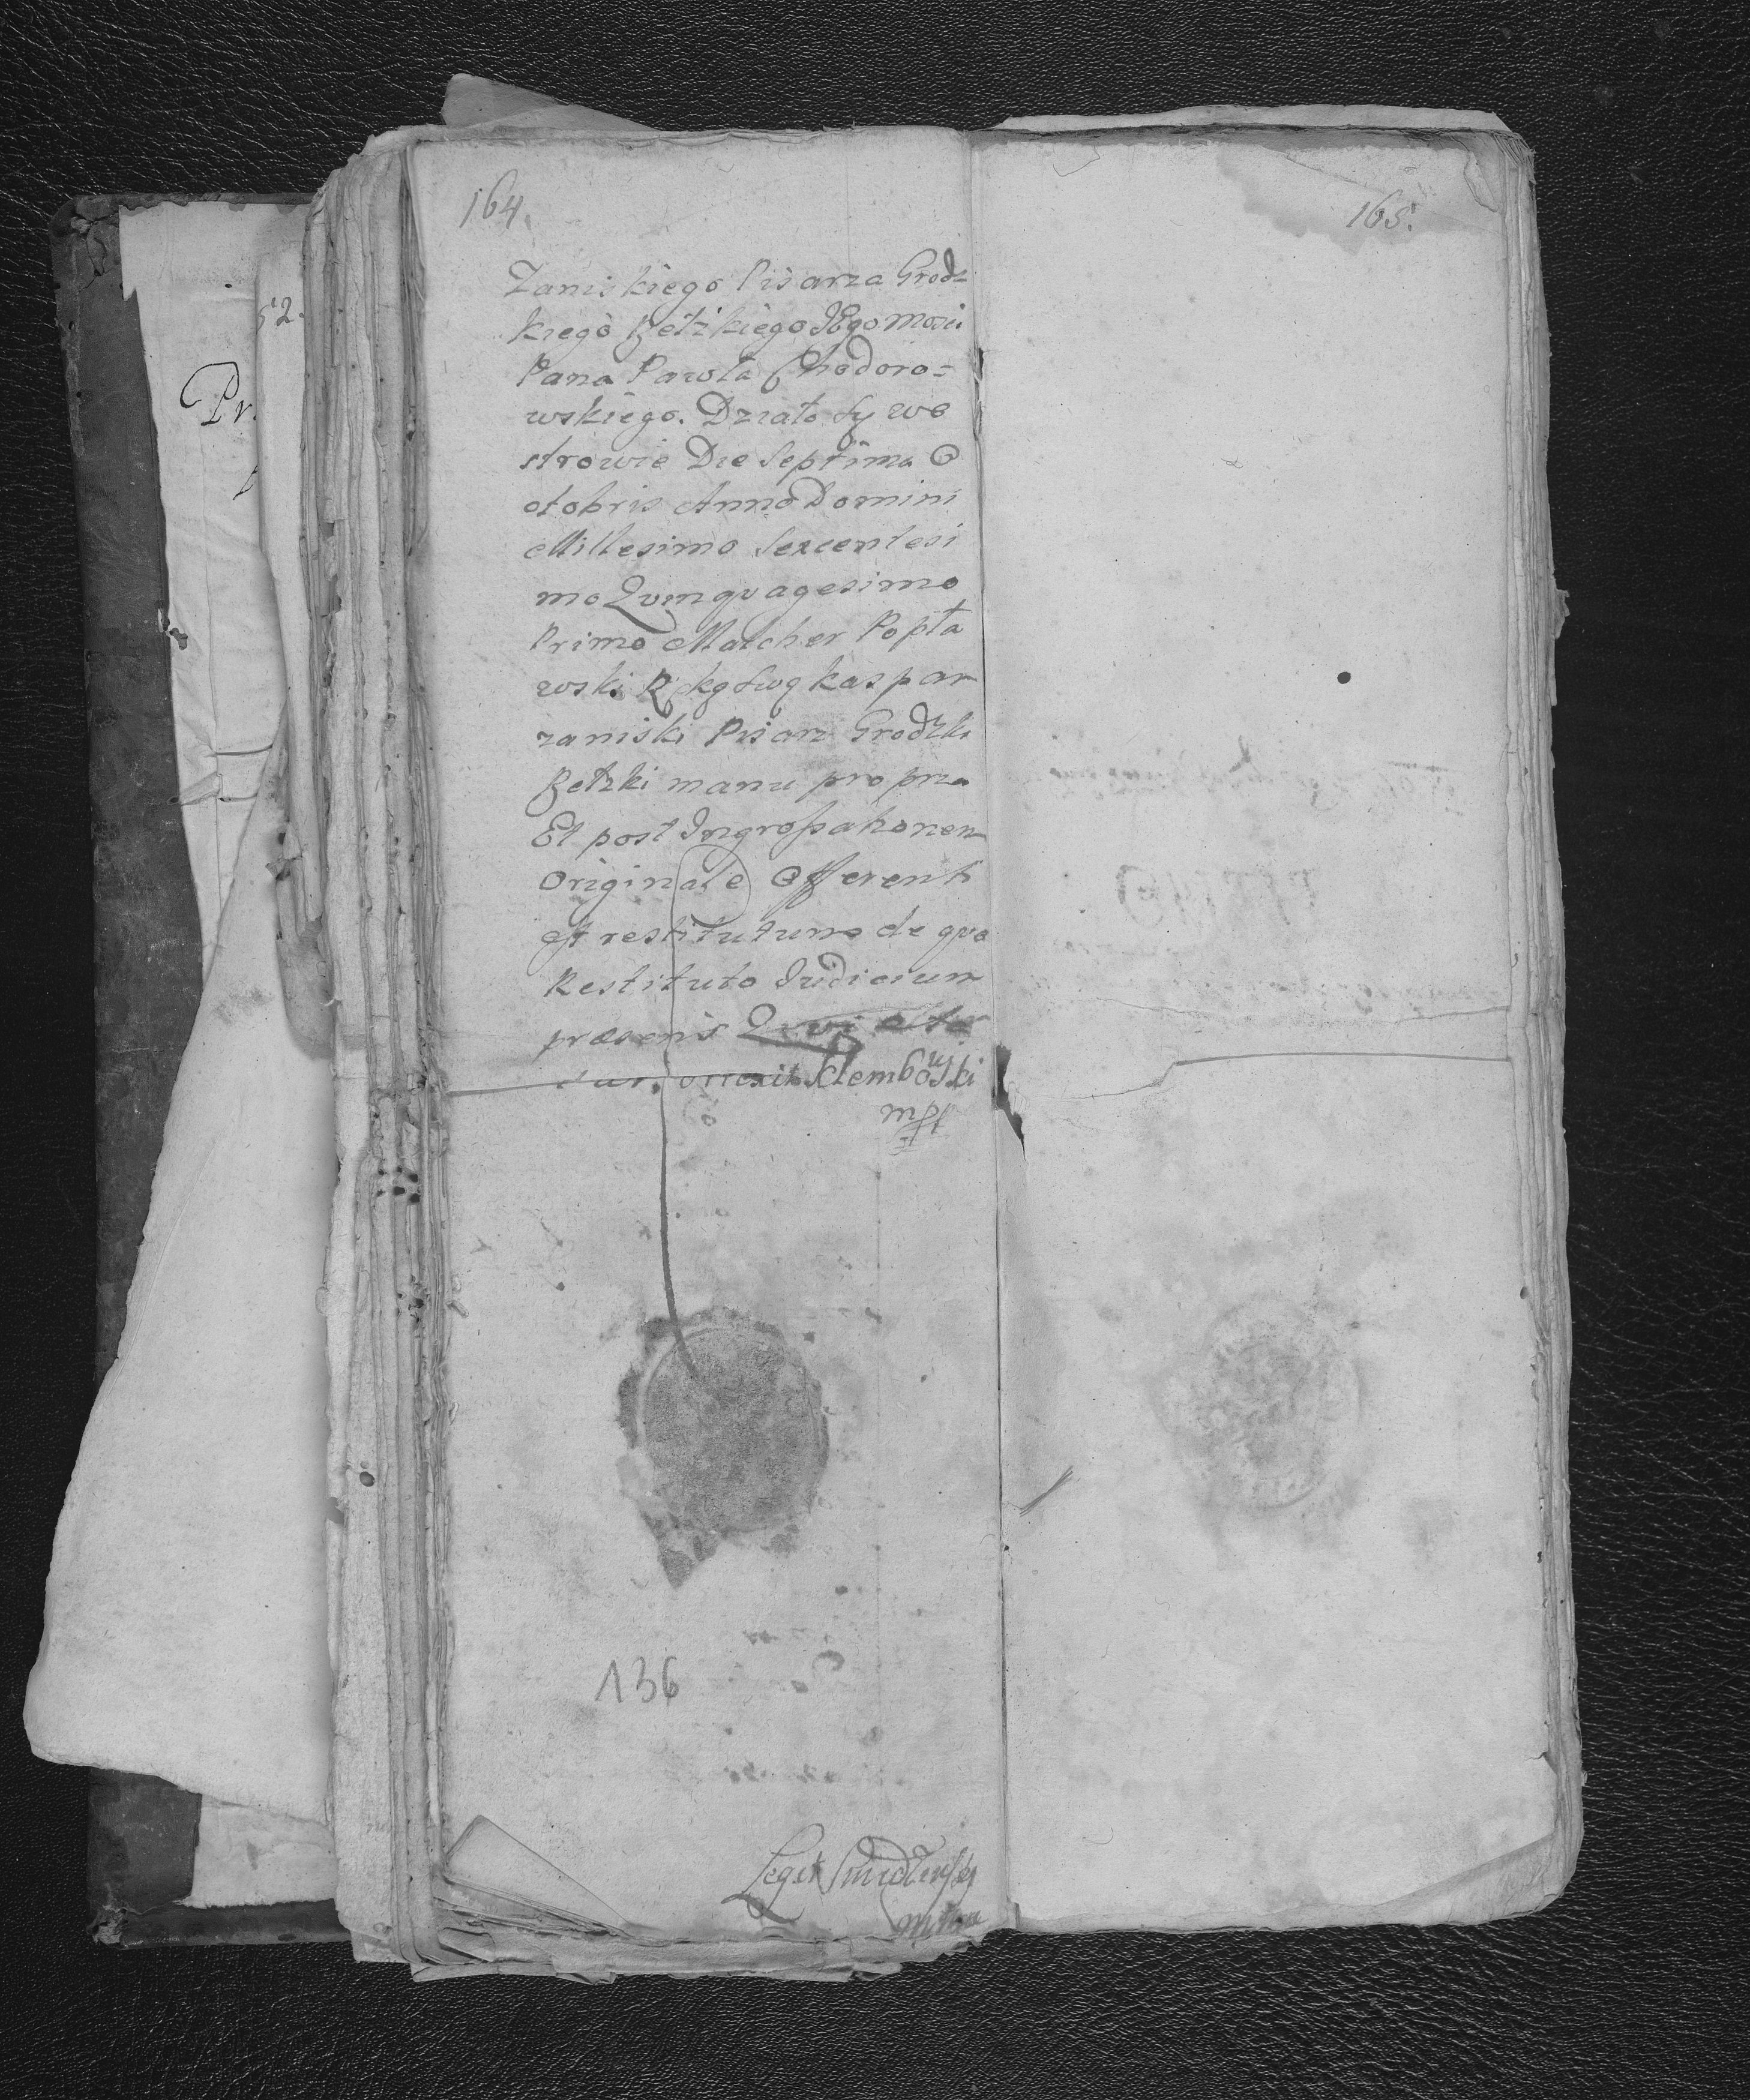 164.
Zaniskiego Pisarza Grodz-
kiego Bełzkiego JEgo Mosci
Pana Pawła Chodoro=
wskiego. Działo sy wo
strowie Die Septima O
ctobris Anno Domini
Millesimo Sexcentesi
mo Qvinqvagesimo
Primo Malcher Popła
wski Ręką swą kaspar
zaniski Pisarz Grodzki
Bełzki manu propria
Et post Ingrossationem
Originale Offerenti
est restitutum de qvo
Restituto Judicium
præsens
Klembowski
mpp
136
Legit
165.
52.
Pr